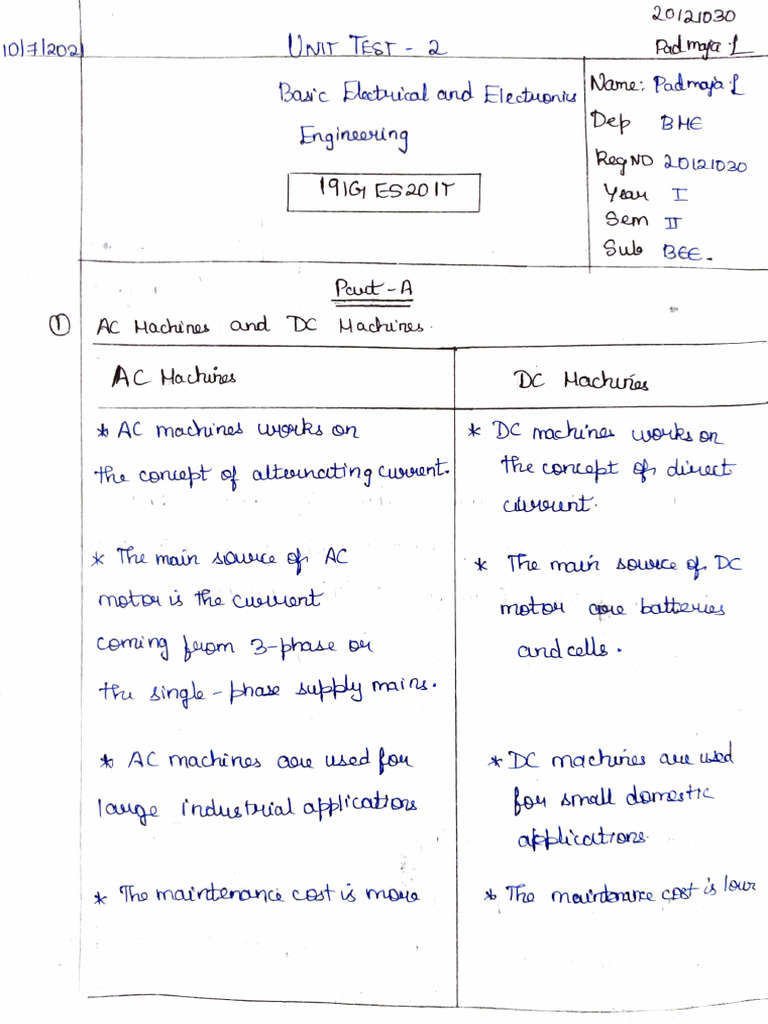 20121030
10/7/2021 UNIT TEST - 2 Padmaja.L
Basic Electrical and Electronics
Engineering
191GES201T
Name: Padmaja L
Dep BME
Reg NO 20121030
Year I
Sem II
Sub BEE.
Part - A
① AC Machines and DC Machines.
AC Machines
* AC machines works on
the concept of alternating current.
* The main source of AC
motor is the current
coming from 3-phase or
the single-phase supply mains.
* AC machines are used for
large industrial applications
* The maintenance cost is more
DC Machines
* DC machines works on
the concept of direct
current.
* The main source of DC
motor are batteries
and cells.
* DC machines are used
for small domestic
applications.
* The maintenance cost is low